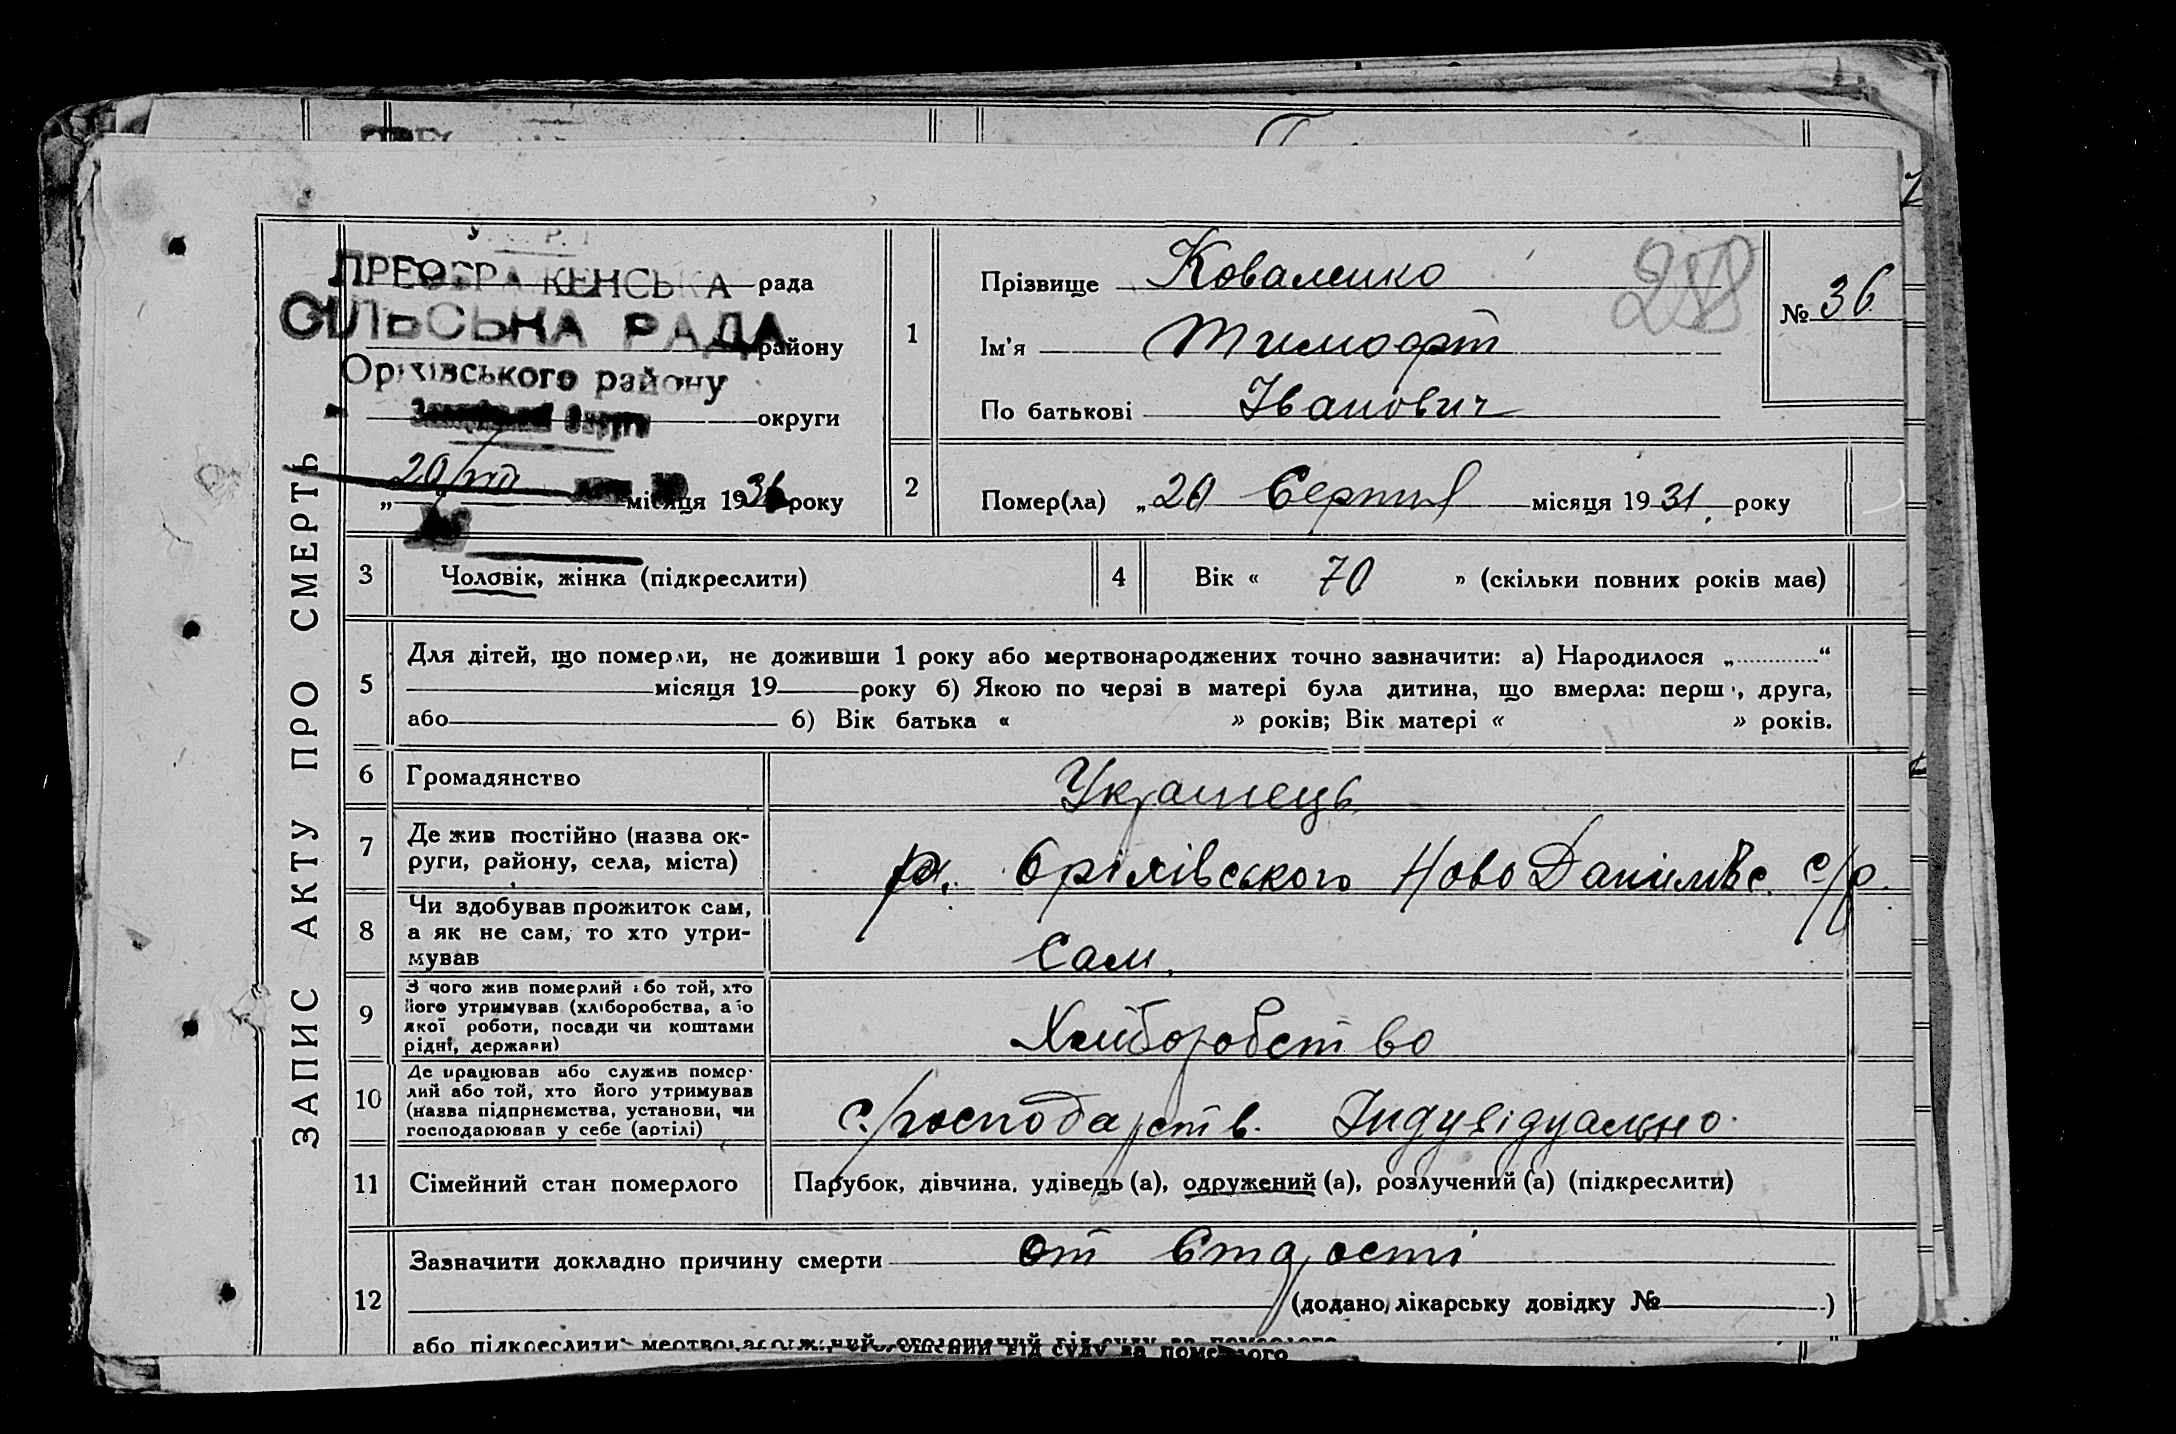 ПРЕОБРАЖЕНСЬКА рада
СІЛЬСЬКА РАДА
району
Оріхівського району
округи
місяця 1931 року
ЗАПИС АКТУ ПРО СМЕРТЬ
1
Прізвище Коваленко
258
№ 36
Ім'я Тимофт
По батькові Іванович
2
Помер(ла) „20 Серпня місяця 1931 року
3
Чоловік, жінка (підкреслити)
4
Вік « 70 » (скільки повних років має)
5
Для дітей, що померли, не доживши 1 року або мертвонароджених точно зазначити: а) Народилося „ “
місяця 19 року б) Якою по черзі в матері була дитина, що вмерла: перша, друга,
або 6) Вік батька « » років; Вік матері « » років.
6
Громадянство
Украінець
7
Де жив постійно (назва ок-
руги, району, села, міста)
р. Оріхівського Ново Данилівс. с/р.
8
Чи здобував прожиток сам,
а як не сам, то хто утри-
мував
Сам.
9
З чого жив померлий або той, хто
його утримував (хліборобства, або
якої роботи, посади чи коштами
рідні, держави)
Хліборобство
10
Де працював або служив помер-
лий або той, хто його утримував
(назва підприємства, установи, чи
господарював у себе (артілі)
с/господарств. Індувідуально.
11
Сімейний стан померлого
Парубок, дівчина, удівець (а), одружений (а), розлучений (а) (підкреслити)
12
Зазначити докладно причину смерти от старості
(додано лікарську довідку № )
або підкреслити: